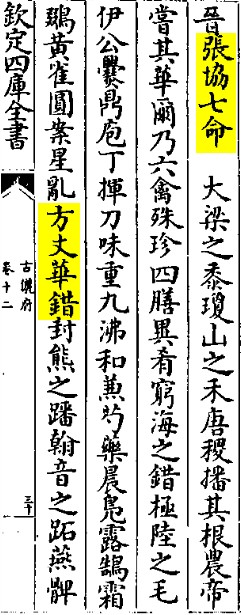 晉張協七命　大梁之黍瓊山之禾唐稷播其根農帝
嘗其華爾乃六禽殊珍四膳異肴窮海之錯極陸之毛
伊公爨鼎庖丁揮刀味重九沸和兼勺藥晨鳧露鵠霜
鵽黃雀圓案星亂方丈華錯封熊之蹯翰音之跖燕髀
欽定四庫全書
古儷府
卷十二
三十